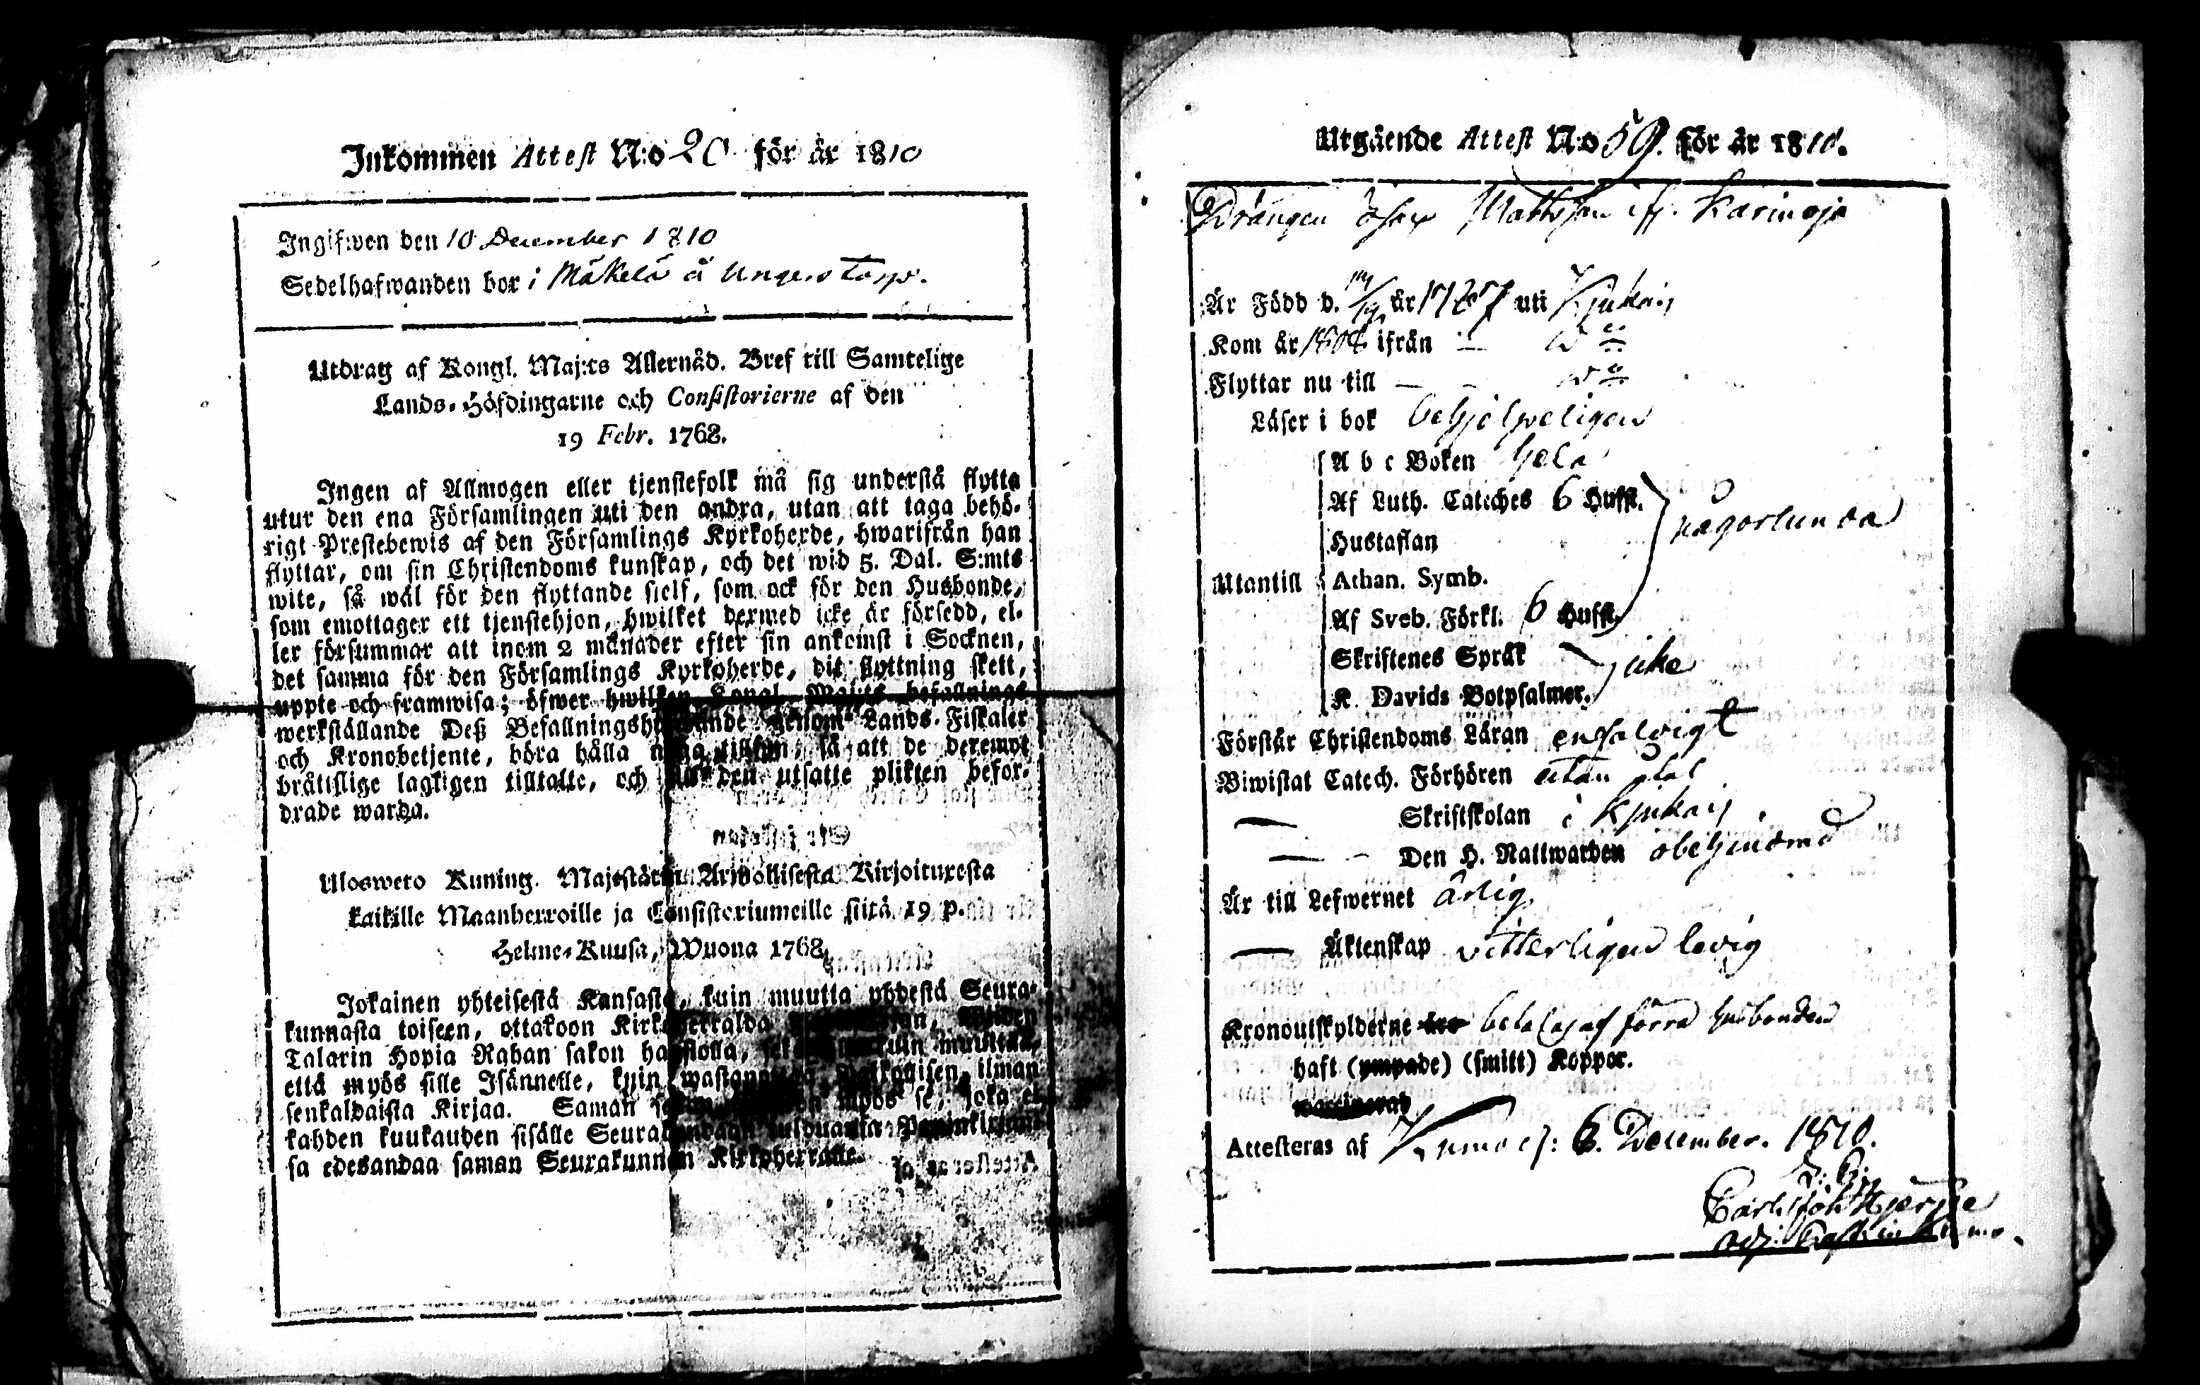 Inkommen Attest N:o 20 för år 1810
Ingifwen den 10 December 1810
Sedelhafwanden bor i Mäkelä å Ungers Torp.
Utdrag af Kongl. Maj:ts Allernåd. Bref till Samtelige
Lands-Höfdingarne och Consistorierne af den
19 Febr. 1768.
Ingen af Allmogen eller tjenstefolk må sig understå flytta
utur den ena Församlingen uti den andra, utan att taga behö-
rigt Prestebewis af den Församlings Kyrkoherde, hwarifrån han
flyttar, om sin Christendoms kunskap, och det wid 5. Dal. S:mts
wite, så wäl för den flyttande sielf, som ock för den Husbonde,
som emottager ett tjenstehjon, hwilket dermed icke är försedd, el-
ler försummar att inom 2 månader efter sin ankomst i Socknen,
det samma för den Församlings Kyrkoherde, dit flyttning skett,
uppte och framwisa; öfwer hwilken Kongl. Maj:ts befallnings
werkställande Deß Befallningshafwande genom Lands-Fiskaler
och Kronobetjente, böra hålla noga tillsyn, så att de deremot
bråtislige lagligen tilltalte, och till den utsatte plikten befor-
drade warda.
Ulosweto Kuning. Majestätin Armollisesta Kirjoituxesta
kaikille Maanherroille ja Consistoriumeille siitä 19 p.
Helme-Kuusa, Wuona 1768.
Jokainen yhteisestä Kansasta, kuin muutta yhdestä Seura-
kunnasta toiseen, ottakoon Kirkoherralda
Talarin Hopia Rahan sakon haastolla, kuin muuttaa,
että myös sille Isännelle, kuin wastanottaa Palkollisen, ilman
senkaldaista Kirjaa. Saman myös se, joka ei
kahden kuukauden sisälle Seurakundaan tulduansa
sa edesandaa saman Seurakunnan Kirkoherralle.
Utgående Attest N:o 59. för år 1810.
Drängen Mattsson ifr. Karinoja
Är Född d. 14/9 år 1787 uti Kjukais
Kom år 1808 ifrån — Do
Flyttar nu till — — Do
Läser i bok behjelpeligen
A b c Boken hela
Af Luth. Catiches 6 Hufst.
Hustaflan
någorlunda
Utantill Athan. Symb.
Af Sveb. Förkl. 6 Hufst.
Skriftenes Språk
icke
K. Davids Botpsalmer.
Förstår Christendoms Läran enfaldigt
Biwistat Catech. Förhören utan
— Skriftskolan i Kjukais
— — Den H. Nattwarden obehindrad
Är till Lefwernet ärlig
— Äktenskap vitterligen ledig
Kronoutskylderne äro betalas af förra husbonden
haft (ympade) (smitt) Koppor.
Attesteras af Kumo d: 6. December. 1810.